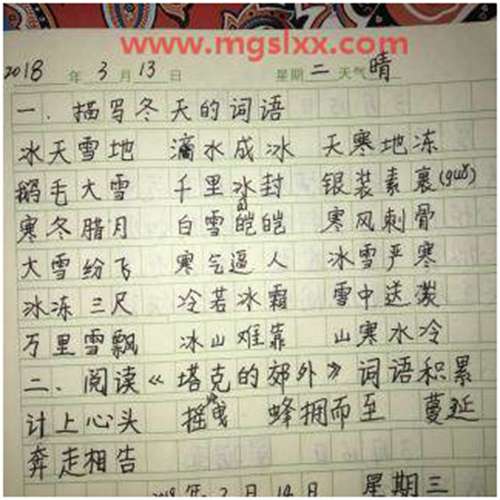 www.mgslxx.com
2018年3月13日 星期二 天气晴
一、描写冬天的词语
冰天雪地 滴水成冰 天寒地冻
鹅毛大雪 千里冰封 银装素裹(guǒ)
寒冬腊月 白雪皑皑 寒风刺骨
大雪纷飞 寒气逼人 冰雪严寒
冰冻三尺 冷若冰霜 雪中送碳
万里雪飘 冰山难靠 山寒水冷
二、阅读《塔克的郊外》词语积累
计上心头 摇曳 蜂拥而至 蔓延
奔走相告
2018年3月14日 星期三